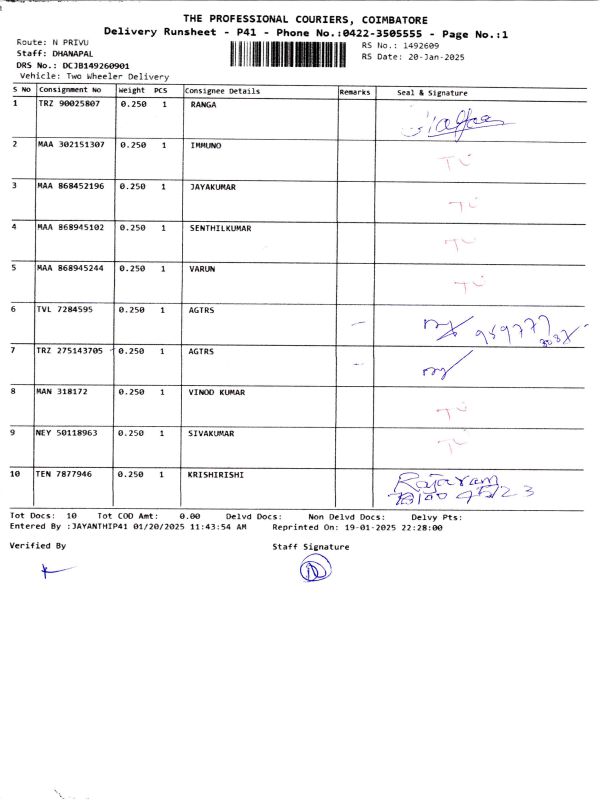 THE PROFESSIONAL COURIERS, COIMBATORE
Delivery Runsheet - P41 - Phone No.:0422-3505555 - Page No.:1
Route: N PRIVU
RS No.: 1492609
Staff: DHANAPAL
RS Date: 20-Jan-2025
DRS No.: DCJB149260901
Vehicle: Two Wheeler Delivery
S No Consignment No Weight PCS Consignee Details Remarks Seal & Signature
1 TRZ 90025807 0.250 1 RANGA
2 MAA 302151307 0.250 1 IMMUNO
3 MAA 868452196 0.250 1 JAYAKUMAR
4 MAA 868945102 0.250 1 SENTHILKUMAR
5 MAA 868945244 0.250 1 VARUN
6 TVL 7284595 0.250 1 AGTRS
7 TRZ 275143705 0.250 1 AGTRS
8 MAN 318172 0.250 1 VINOD KUMAR
9 NEY 50118963 0.250 1 SIVAKUMAR
10 TEN 7877946 0.250 1 KRISHIRISHI Rajaram
Tot Docs: 10 Tot COD Amt: 0.00 Delvd Docs: Non Delvd Docs: Delvy Pts:
Entered By :JAYANTHIP41 01/20/2025 11:43:54 AM Reprinted On: 19-01-2025 22:28:00
Verified By Staff Signature